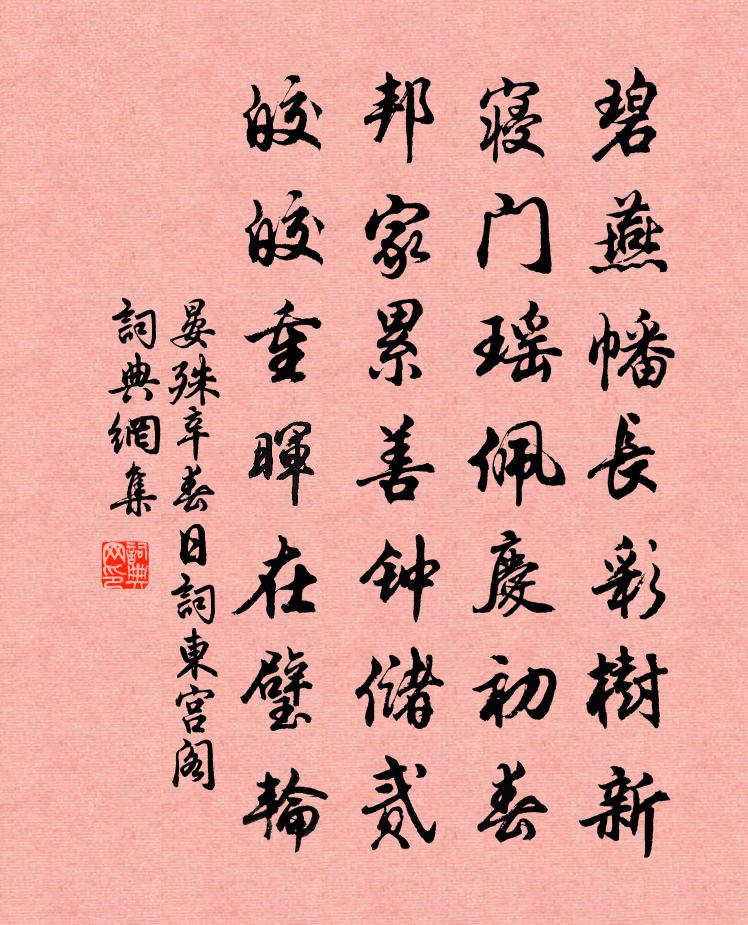 碧燕幡长彩樹新
寝门瑶佩慶初春
邦家累善钟儲贰
皎皎重暉在璧輪
晏殊辛春日詞東宫阁
詞典網集
詞典网印